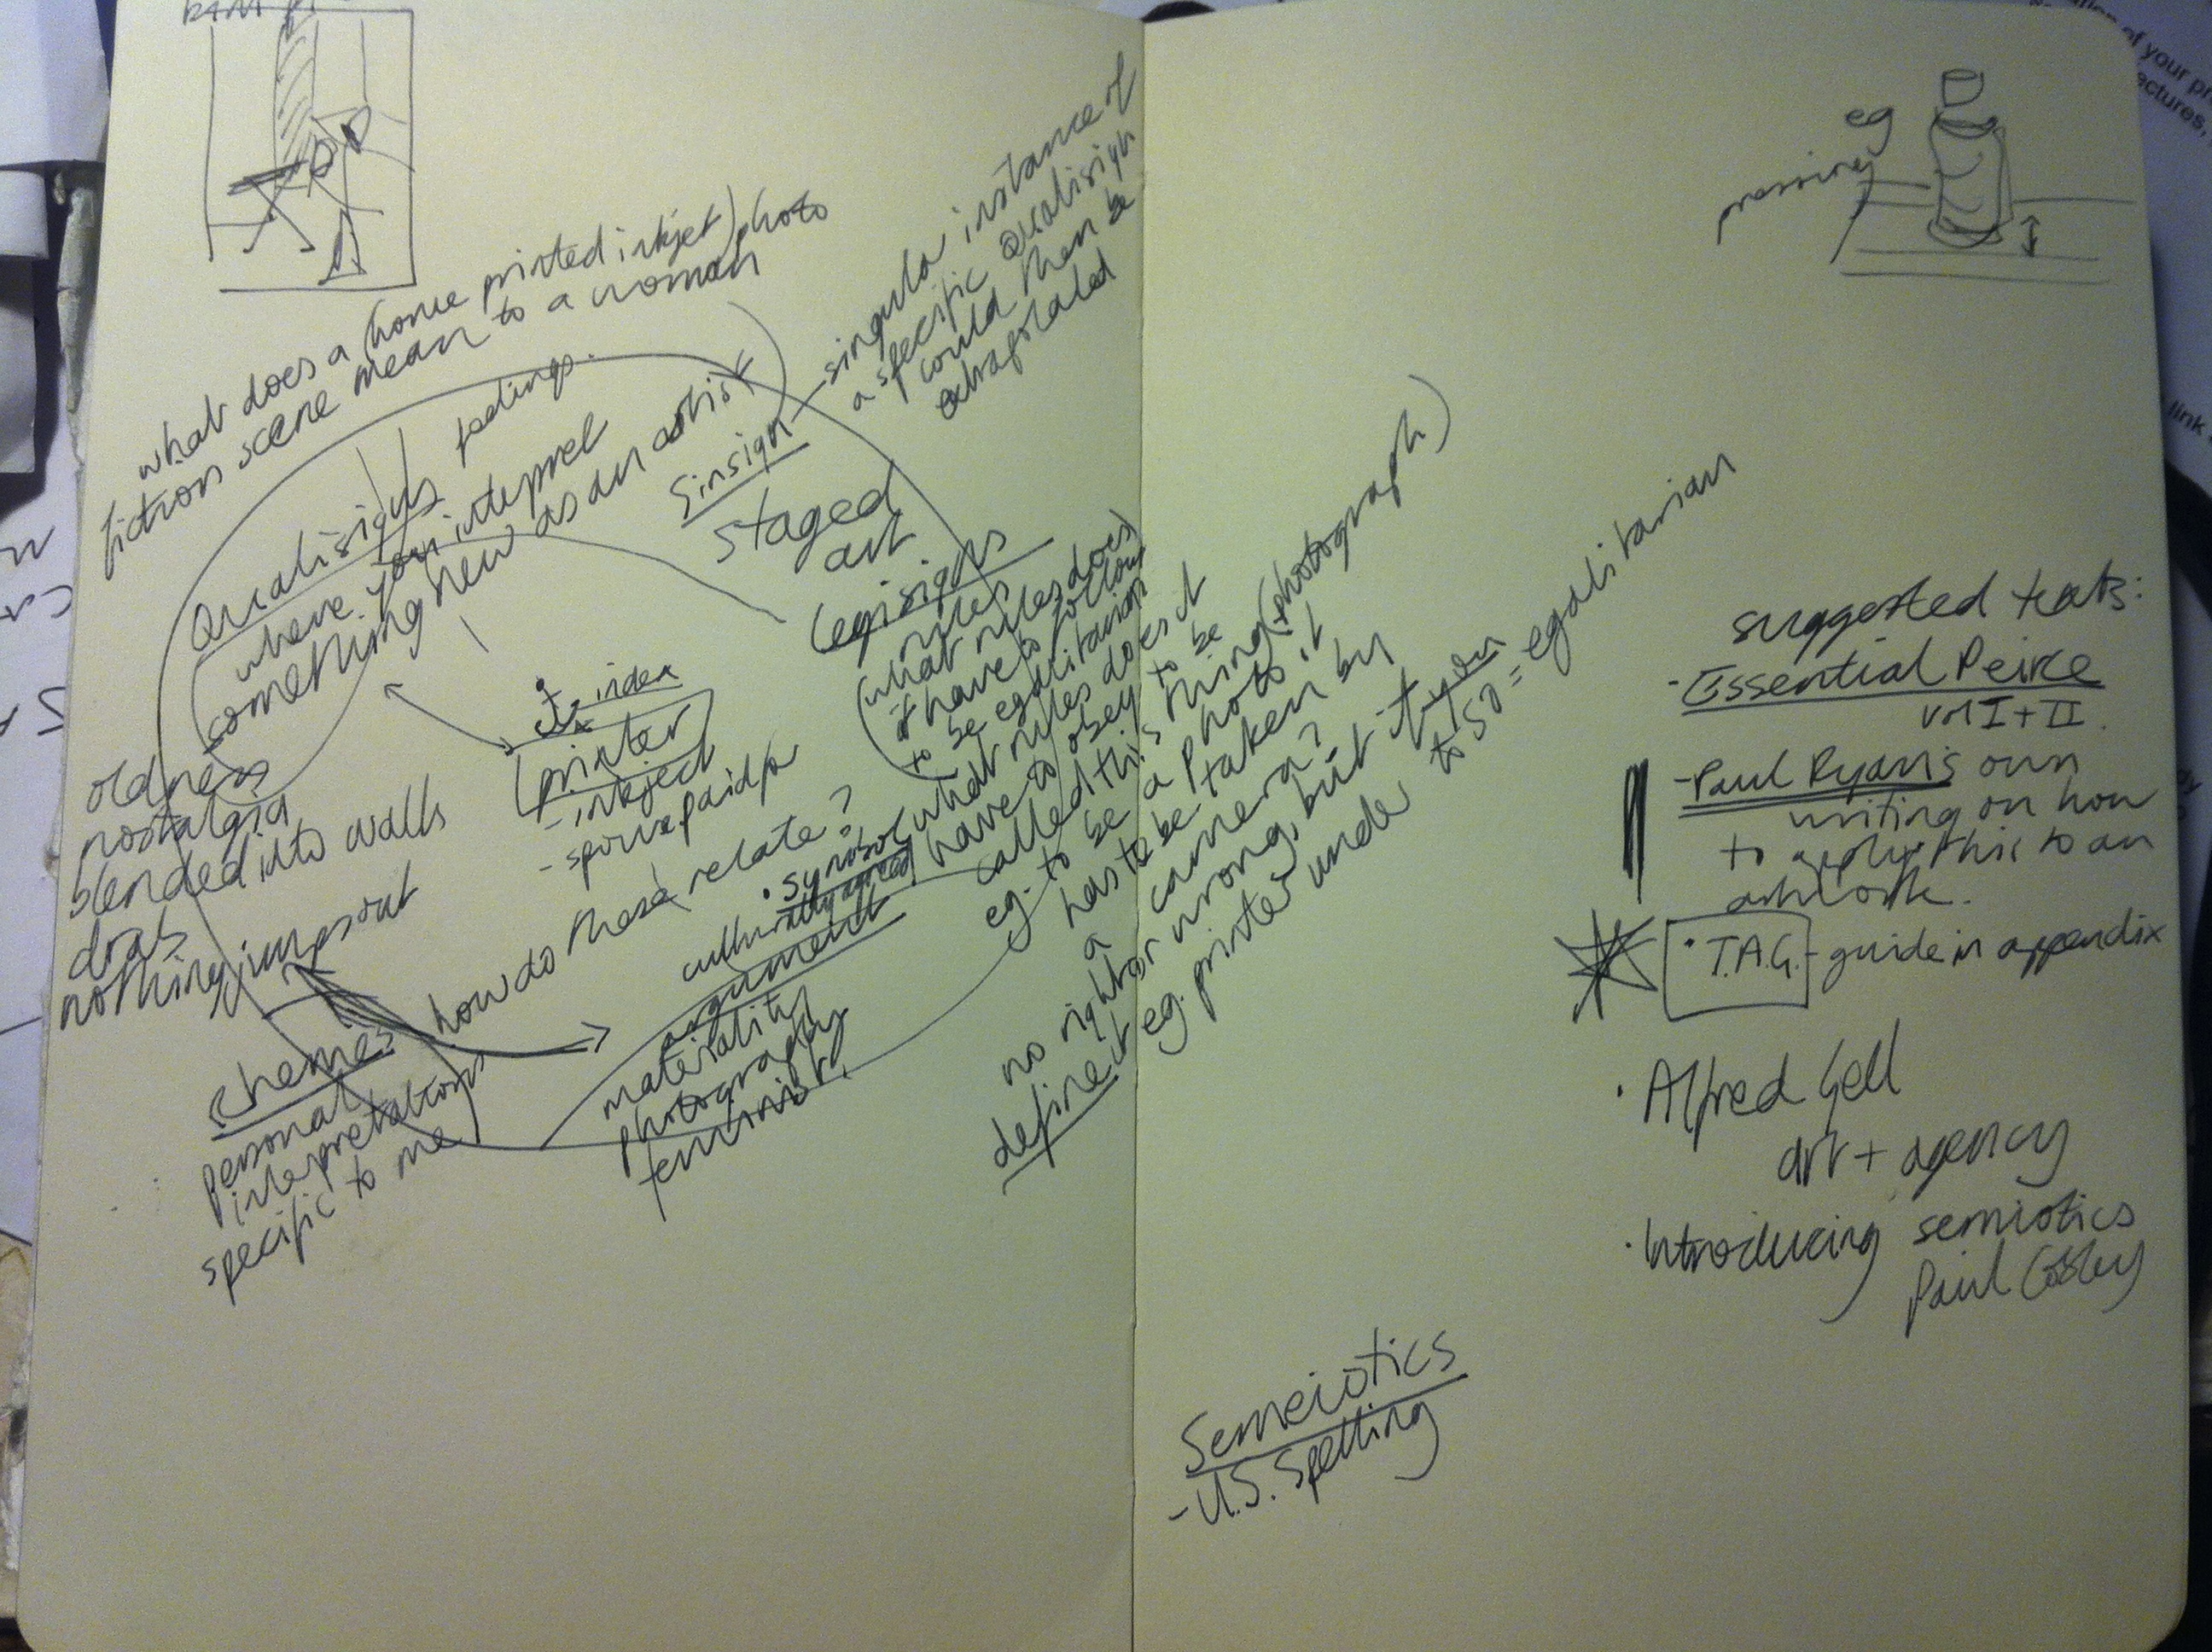 what does a (home printed inkjet) photo
fiction scene mean to a woman
feelings.
Qualisigns
where you intepret
something new as an artist
Sinsign — singular instance of
a specific Qualisign
could then be
extrapolated
staged
art
Legisigns
rules
(what rules does
it have to follow
to be egalitarian)
what rules does it
have to obey to be
called this thing (photograph)
eg. to be a photo it
has to be taken by
a camera?
no right or wrong, but if you
define it eg. printer under
to 50 = egalitarian
index
printer
- inkject
- paid for
oldness
nostalgia
blended into walls
drab
nothing
how do these relate?
• symbol
culturally agreed
argument
materiality
photography
feminist
rhemes
personal
interpretations
specific to me
eg
pressing
suggested texts:
- Essential Peirce
vol I + II.
- Paul Ryan's own
writing on how
to apply this to an
artwork.
• T.A.G. - guide in appendix
• Alfred Gell
art + agency
• Introducing semiotics
Paul Cobley
Semeiotics
- U.S. Spelling
of your pr
ectures,
link